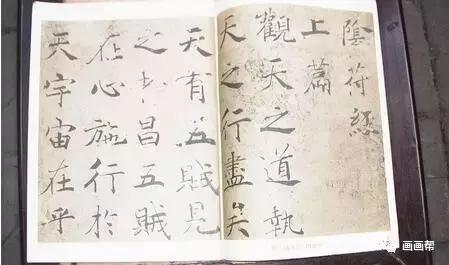 陰符經
上篇
觀天之道執
天之行盡矣
天有五賊見
之者昌五賊
在心施行於
天宇宙在乎
画画帮